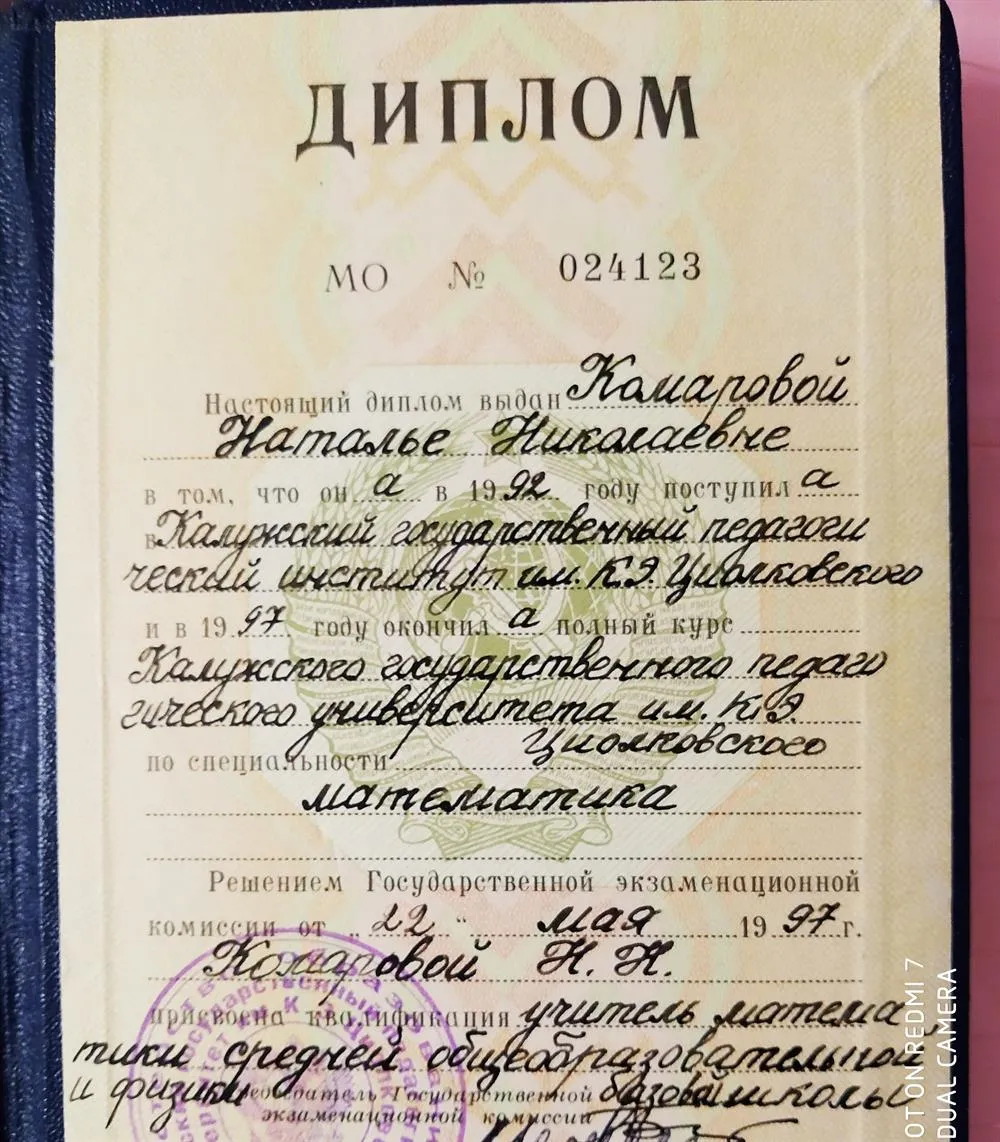 ДИПЛОМ
МО № 024123
Настоящий диплом выдан Комаровой
Наталье Николаевне
в том, что он а в 1992 году поступил а
в Калужский государственный педагоги
ческий институт им. К.Э. Циолковского
и в 1997 году окончил а полный курс
Калужского государственного педаго
гического университета им. К.Э.
Циолковского
по специальности
математика
Решением Государственной экзаменационной
комиссии от „22“ мая 1997 г.
Комаровой Н. Н.
присвоена квалификация учитель матема
тики средней общеобразовательной
и физики базовой школы
Председатель Государственной
экзаменационной комиссии
SHOT ON REDMI 7
DUAL CAMERA